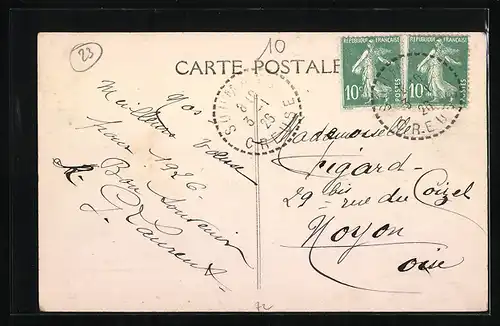 23
10
CARTE-POSTALE
RÉPUBLIQUE FRANÇAISE
10c
POSTES
RÉPUBLIQUE FRANÇAISE
10c
POSTES
3-1
26
CREUSE
Nos
Meilleurs Vœux
pour 1926.
Bon Souvenir
Laurent
Mademoiselle
Figard
29 bis rue du
Noyon
Oise
72